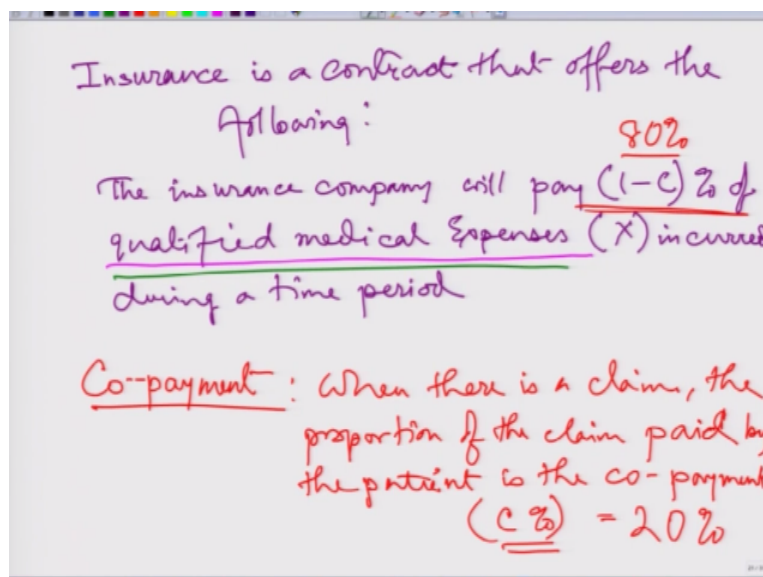 Insurance is a contract that offers the
following:
80%
The insurance company will pay (1-C)% of
qualified medical Expenses (X) incurred
during a time period
Co-payment: When there is a claim, the
proportion of the claim paid by
the patient is the co-payment
(C%) = 20%